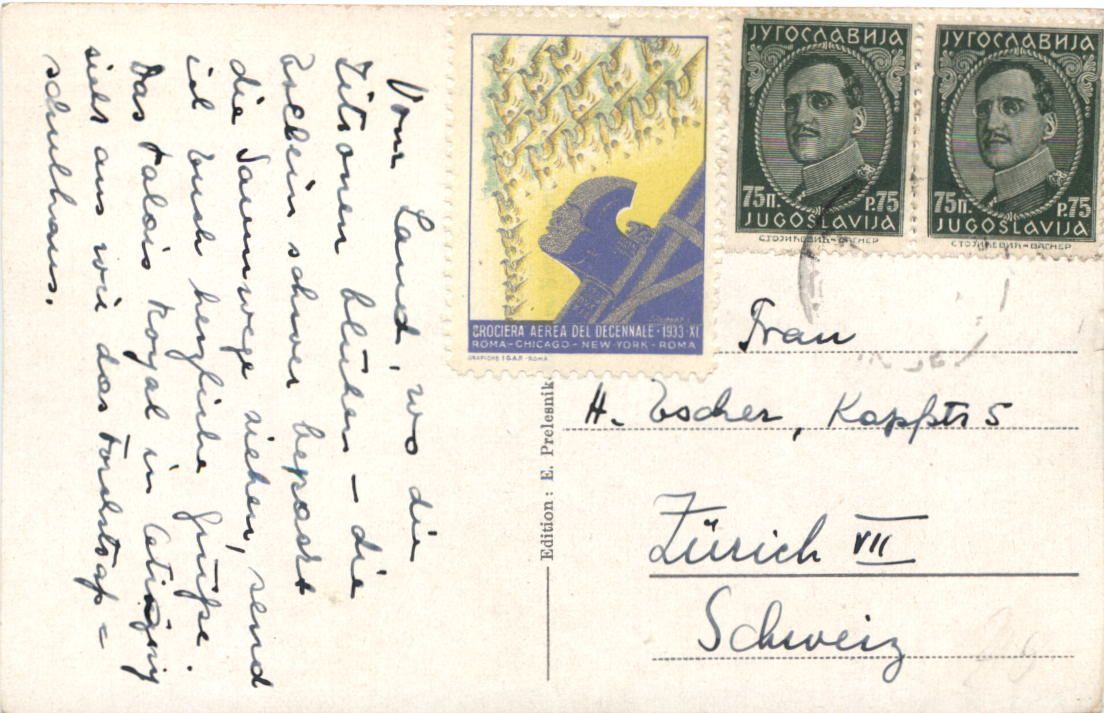 Vom Land, wo die
Zitronen blühen – die
Eselein schwer bepackt
die Saumwege ziehen, send
ich Euch herzliche Grüße.
Das Palais Royal in
sieht aus wie das Forchstraß=
schulhaus.
CROCIERA AEREA DEL DECENNALE · 1933 · XI
ROMA-CHICAGO-NEW YORK-ROMA
GRAFICHE I.G.A.P. ROMA
ЈУГОСЛАВИЈА
75п. P.75
JUGOSLAVIJA
СТОЈИЋЕВИЋ-ВАГНЕР
ЈУГОСЛАВИЈА
75п. P.75
JUGOSLAVIJA
СТОЈИЋЕВИЋ-ВАГНЕР
Edition: E. Prelesnik
Frau
H. Escher, Kapfstr 5
Zürich VII
Schweiz